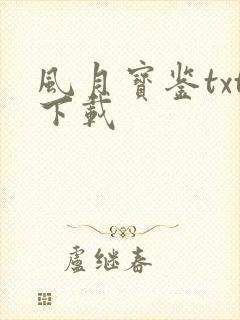 風月寶鉴txt
下載
盧继春